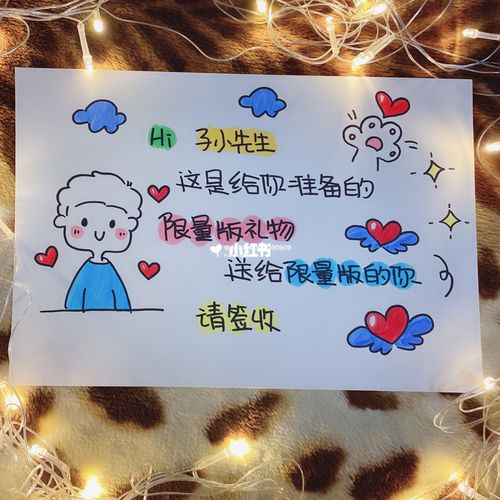 Hi 孙先生
这是给你准备的
限量版礼物
小红书
送给限量版的你
请签收